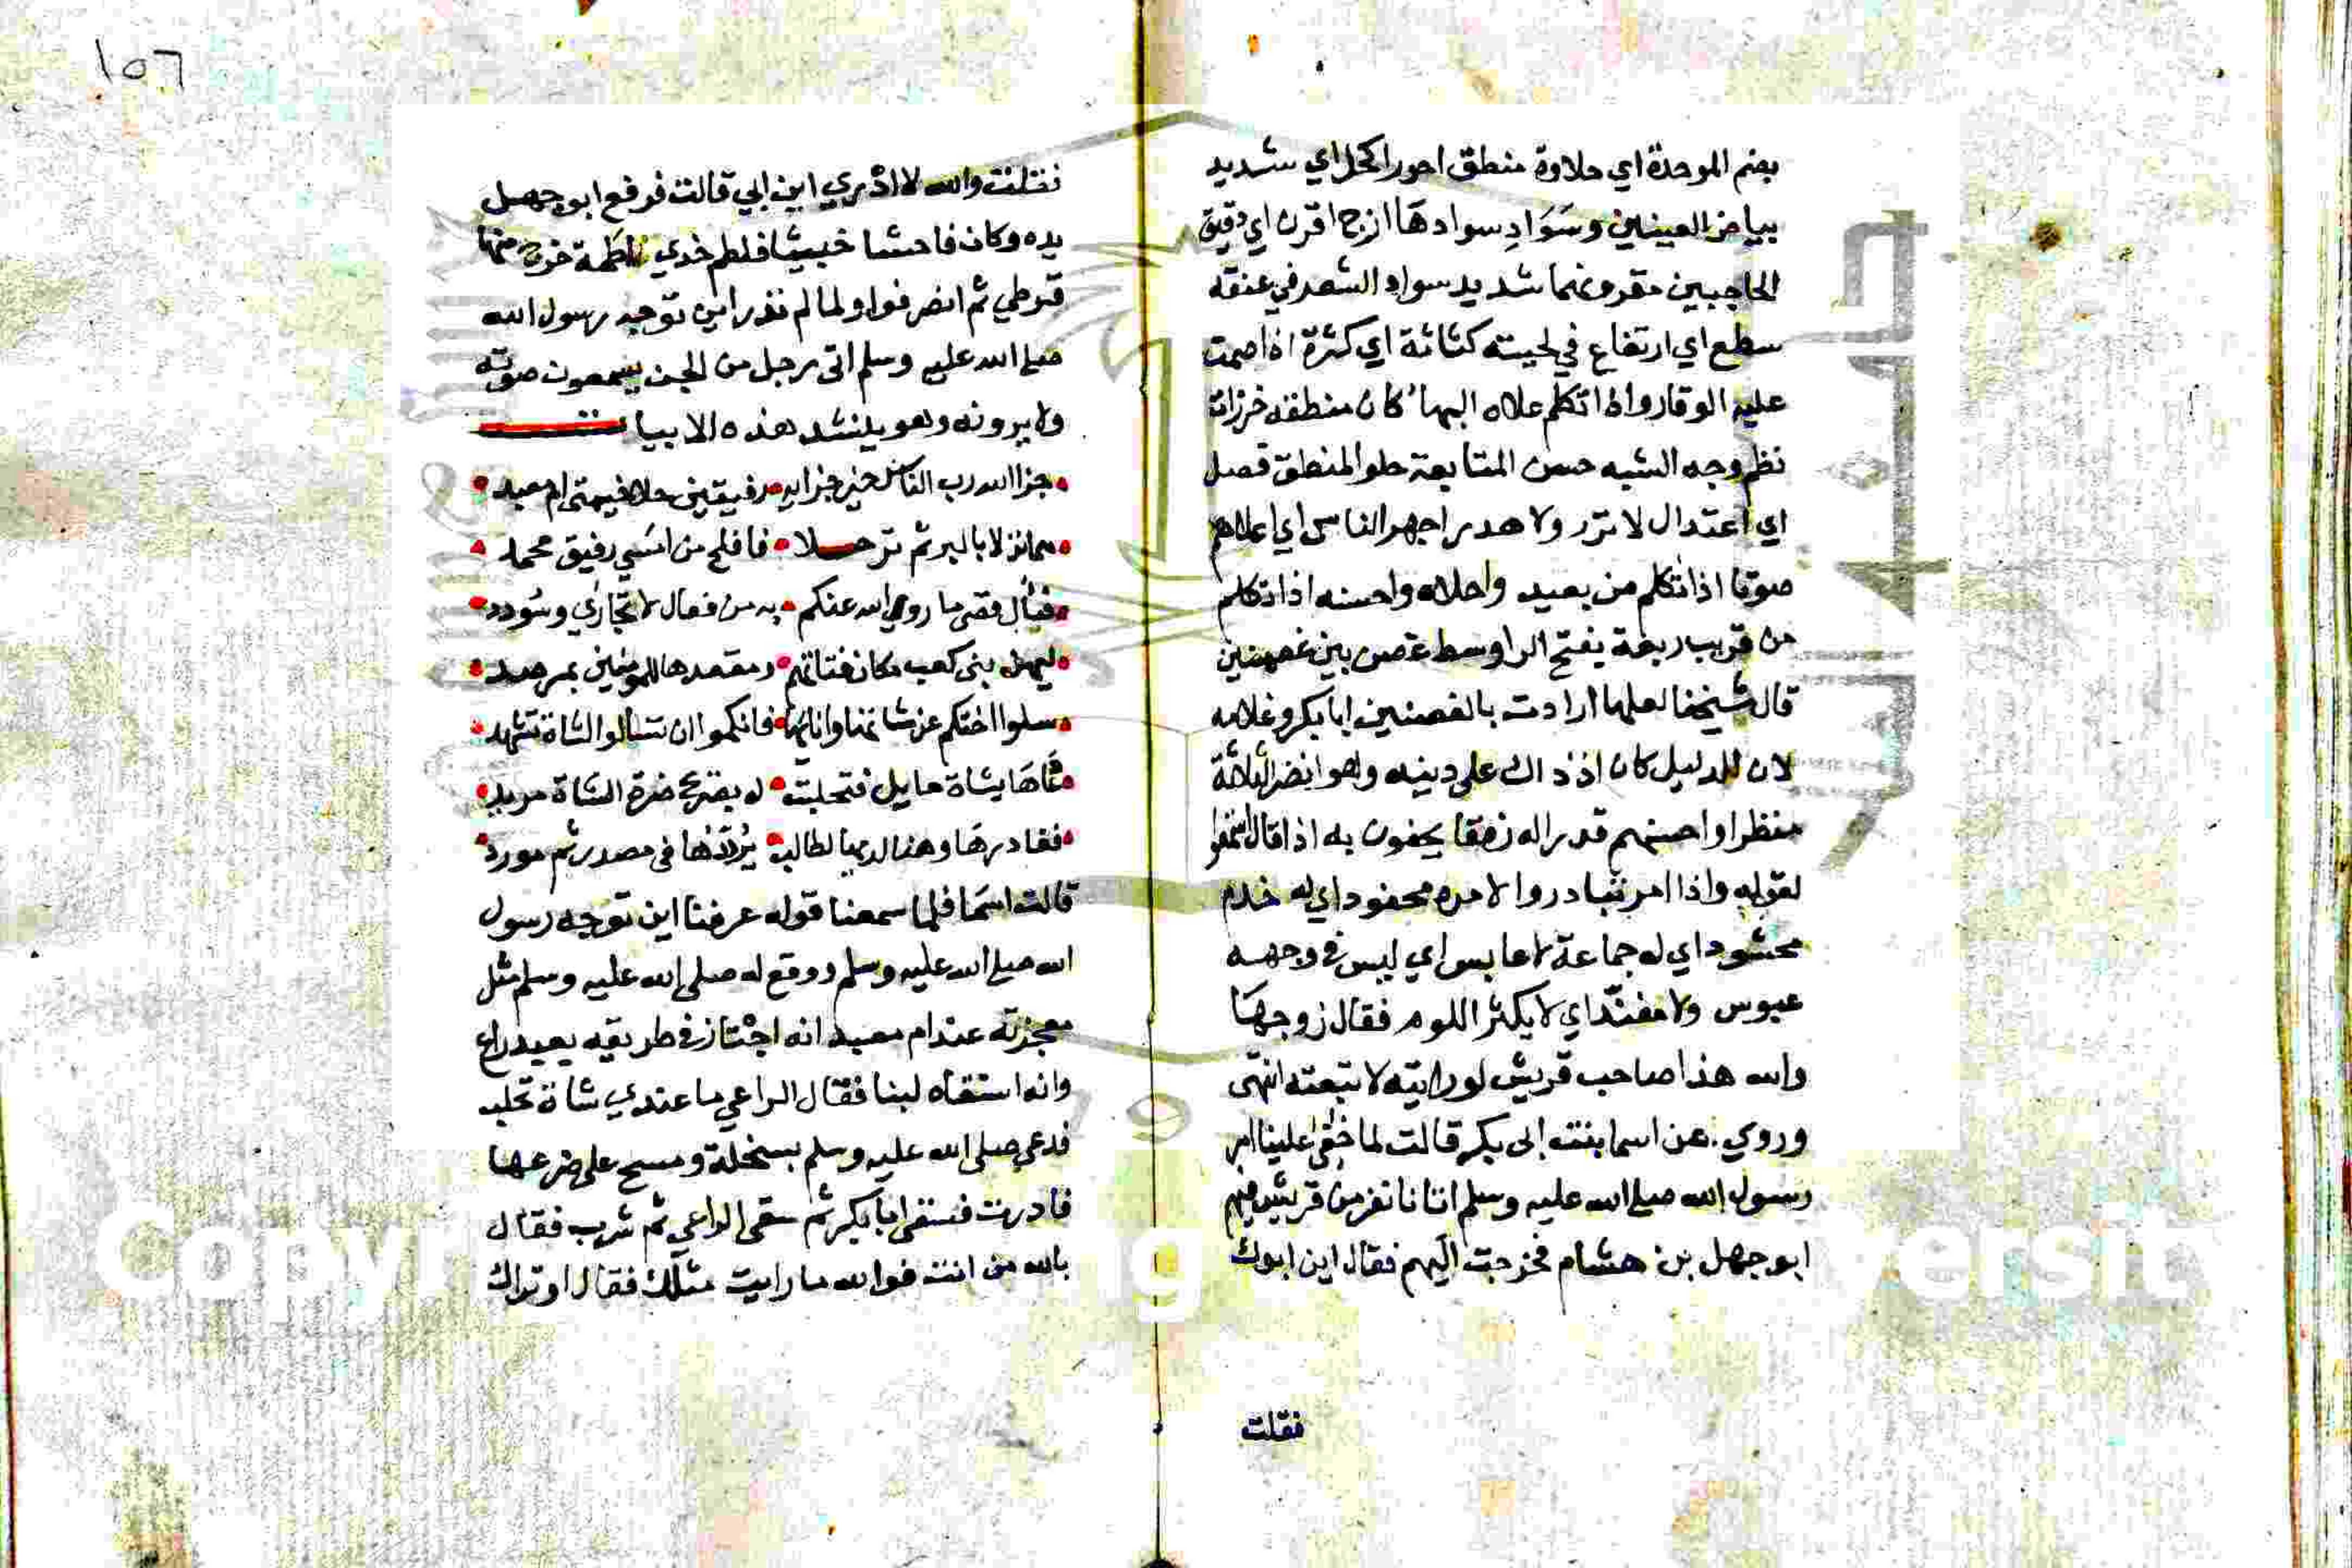 بضم الموحدة اي حلاوة منطق احور اكحل اي شديد
بياض العينين وسَوَادِ سوادهَا ازج اقرن اي دقيق
الحاجبين مقرونهما شديد سواد الشعر في عنقه
سطع اي ارتفاع في لحيته كثاثة اي كثرة اذا صمت
عليه الوقار واذا تكلم علاه البهاء كان منطقه خرزات
نظم وجه الشبه حسن المتابعة حلو المنطق فصل
اي اعتدال لا نزر ولا هدر اجهر الناس اي اعلاهم
صوتا اذا تكلم من بعيد واحلاه واحسنه اذا تكلم
من قريب ربعة بفتح الرا وسط غصن بين غصنين
قال شيخنا لعلها ارادت بالغصنين ابا بكر وغلامه
لان الدليل كان اذ ذاك على دينه وهو انضر الثلاثة
منظرا واحسنهم قدرا له رفقا يحفون به اذا قال استمعوا
لقوله واذا امر تبادروا لامره محفود اي له خدم
محشود اي له جماعة لا عابس اي ليس في وجهه
عبوس ولا مفنّد اي لا يكثر اللوم فقال زوجهَا
والله هذا صاحب قريش لو رايته لاتبعته انتهى
وروي عن اسما بنت ابى بكر قالت لما خفي علينا امر
رسول الله صلى الله عليه وسلم اتانا نفر من قريش فيهم
ابو جهل بن هشام فخرجت اليهم فقال اين ابوك
فقلت
١٥٦
فقلت والله لا ادري اين ابي قالت فرفع ابو جهل
يده وكان فاحشا خبيثا فلطم خدي لطمة خرج منها
قرطي ثم انصرفوا ولما لم ندر اين توجه رسول الله
صلى الله عليه وسلم اتى رجل من الجن يسمعون صوته
ولا يرونه وهو ينشد هذه الابيات
جزا الله رب الناس خير جزايه رفيقين حلا خيمتى ام معبد
هما نزلا بالبر ثم ترحلا فافلح من امسي رفيق محمد
فيال قصى ما روي الله عنكم به من فعال لا تجازي وسُودد
ليهن بنى كعب مكان فتاتهم ومقعدها للمومنين بمرصد
سلوا اختكم عن شاتها وانائها فانكموا ان تسالوا الشاة تشهد
دعَاهَا بشاة حايل فتحلبت له بصريح ضرة الشاة مزبد
فغادرهَا رهنا لديها لطالب يُردّدُها فى مصدر ثم مورد
قالت اسمَا فلما سمعنا قوله عرفنا اين توجه رسول
الله صلى الله عليه وسلم ووقع له صلى الله عليه وسلم مثل
معجزته عند ام معبد انه اجْتاز في طريقه بعبد راع
وانه استسقاه لبنا فقال الراعي ما عندي شاة تحلب
فدعى صلى الله عليه وسلم بسخلة ومسح على ضرعها
فادرت فسقى ابا بكر ثم سقى الراعي ثم شرب فقال
بالله من انت فوالله ما رايت مثلك فقال اوتراك